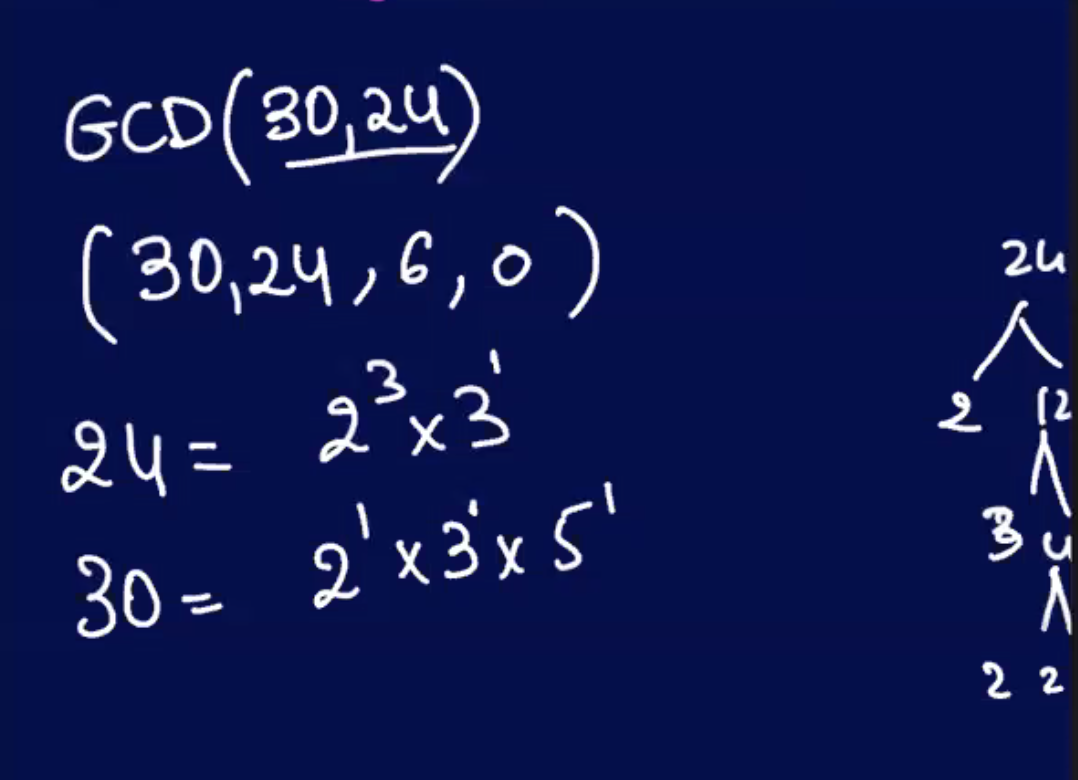 GCD(30,24)
(30,24,6,0)
24 = 2³ x 3¹
30 = 2¹ x 3¹ x 5¹
24
2 12
3 4
2 2